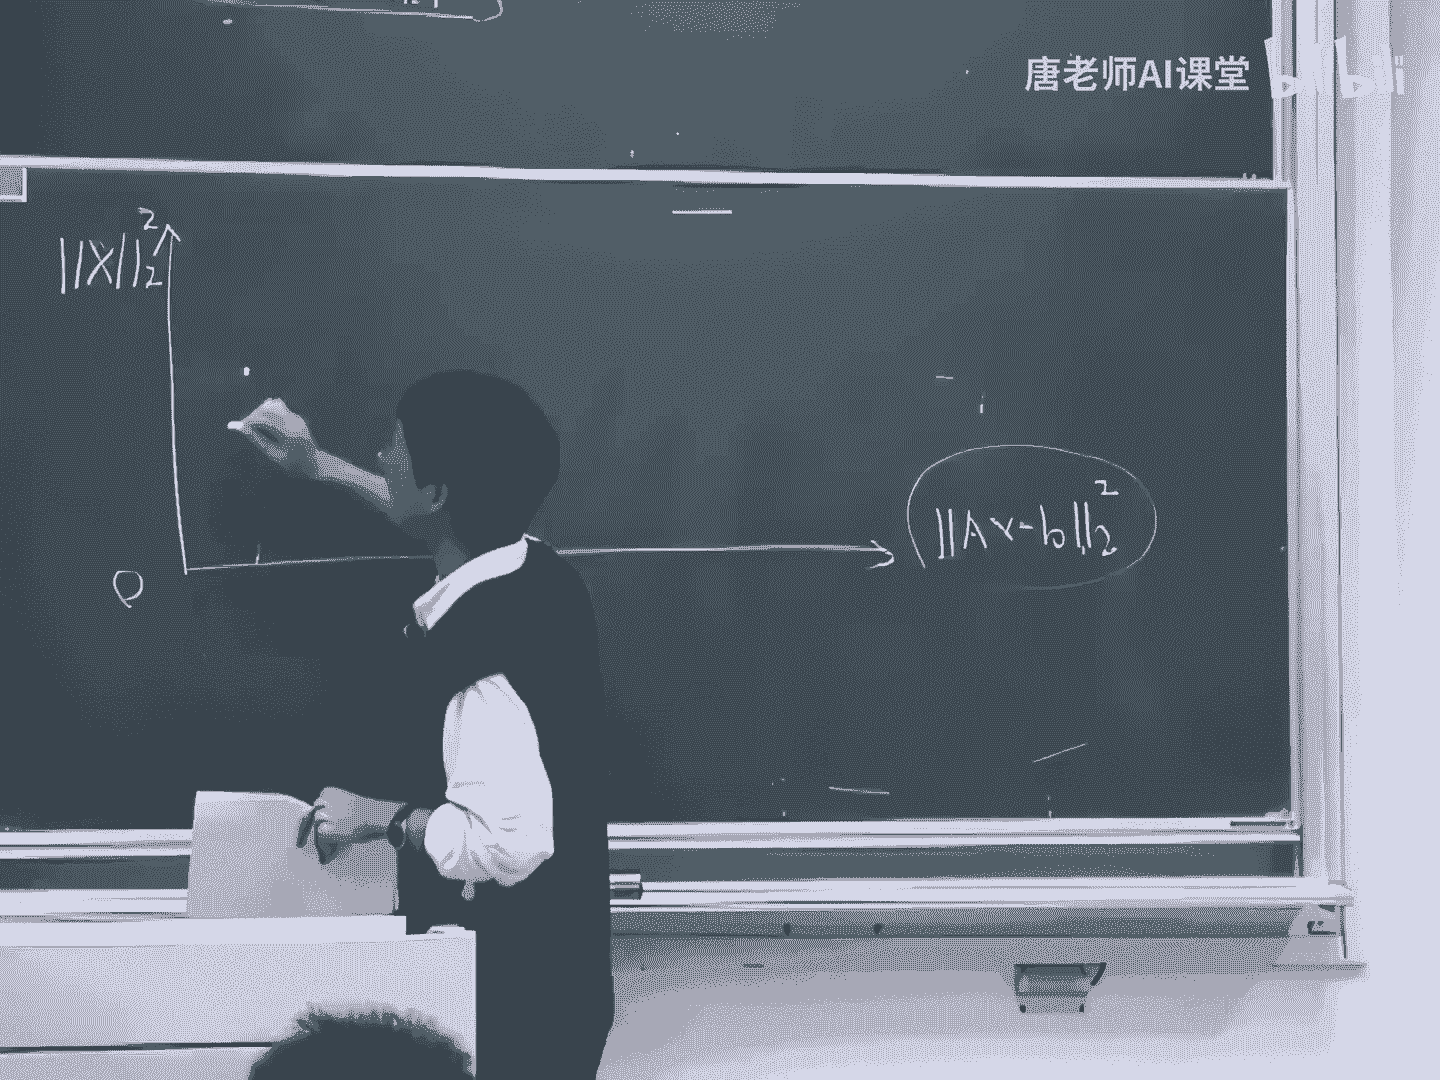 唐老师AI课堂 bilibili
||X||₂²
||Ax-b||₂²
0